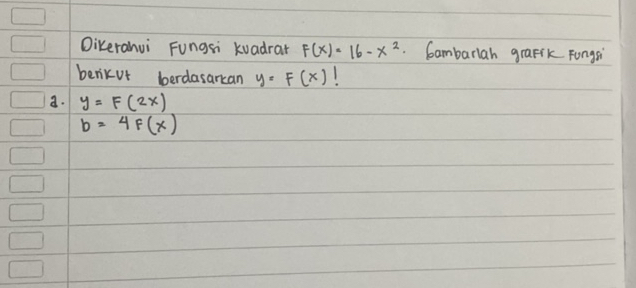 Diketahui Fungsi kuadrat F(x) = 16 - x². Gambarlah grafik Fungsi
berikut berdasarkan y = F(x)!
a. y = F(2x)
b = 4F(x)